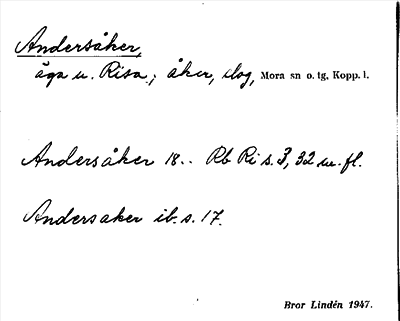 Andersåker,
äga u. Risa.; åker, slog, Mora sn o. tg, Kopp. l.
Andersåker 18.. Rb Ri s. 3, 32 m. fl.
Andersaker ib. s. 17.
Bror Lindén 1947.